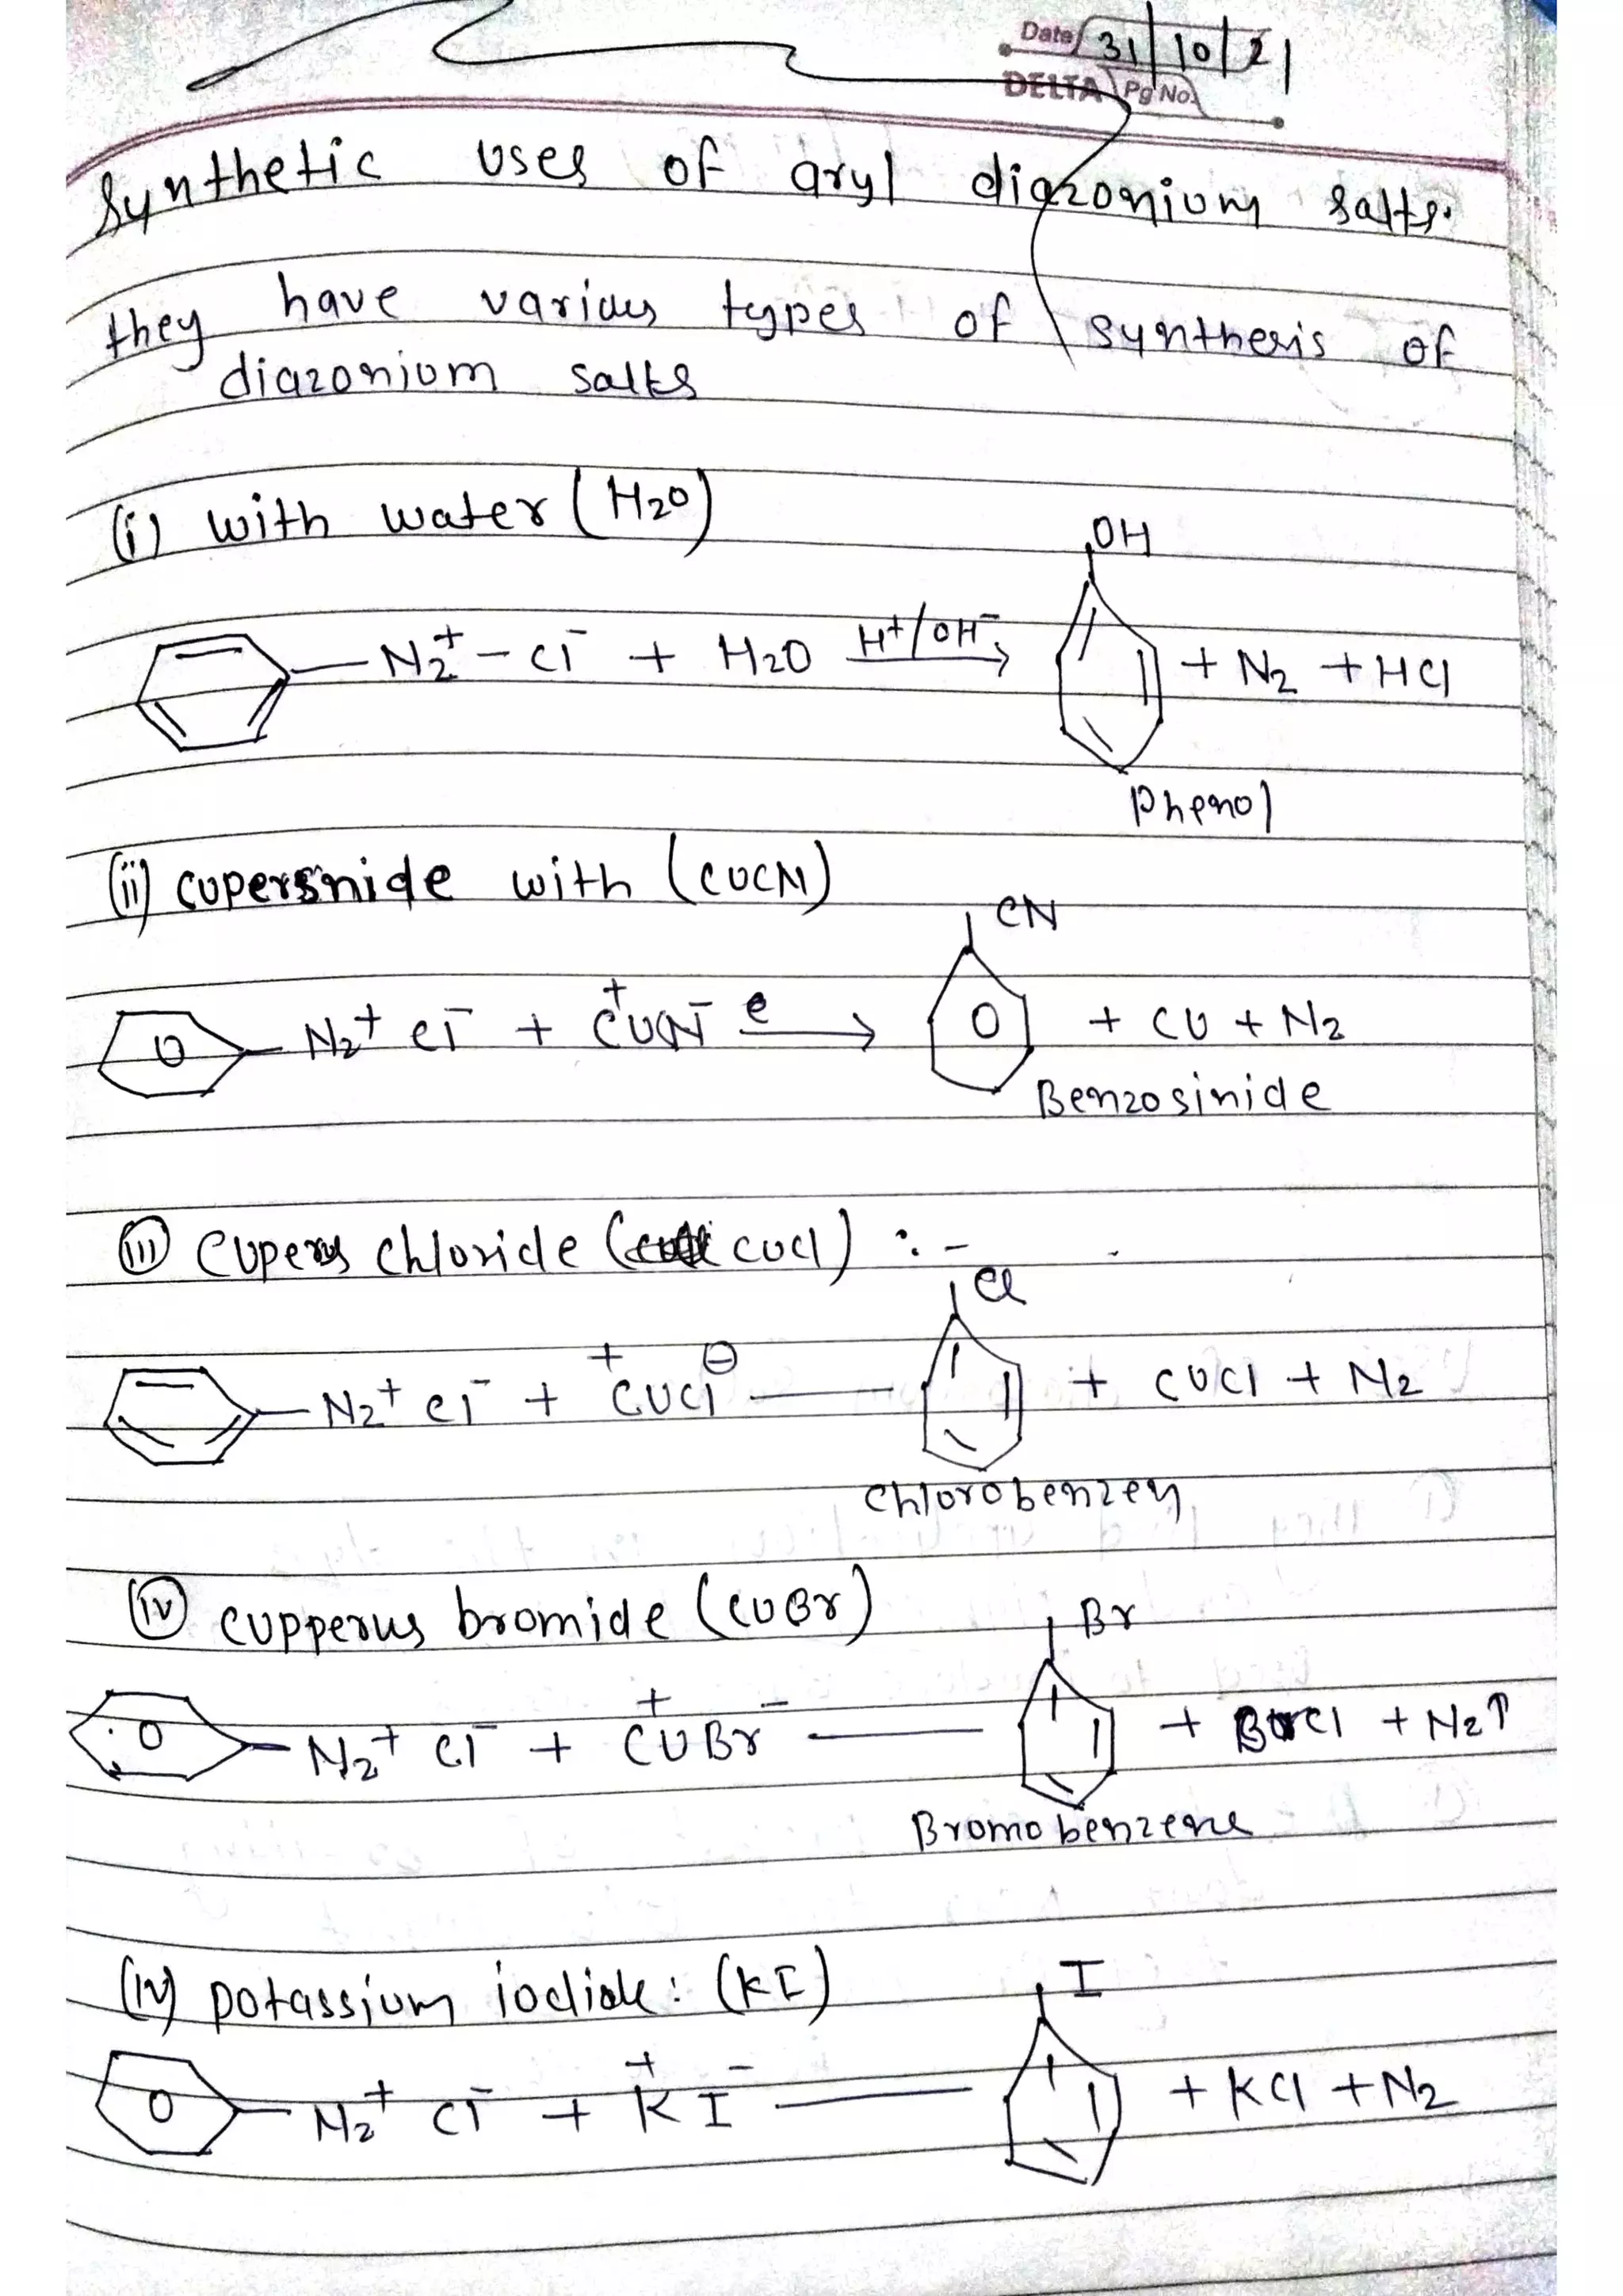 Date 31/10/21
DELTA Pg No.
Synthetic uses of aryl diazonium salts.
they have various types of synthesis of
diazonium salts
(i) with water (H2O)
OH
N2+ - Cl- + H2O H+/OH- → + N2 + HCl
Phenol
(ii) cupersnide with (CUCN)
CN
O N2+ Cl- + CUN e → O + CU + N2
Benzosinide
(iii) Cuperus chloride (CUCl) :-
Cl
N2+ Cl- + CUCl + CUCl + N2
Chlorobenzen
(iv) cupperus bromide (CUBr)
Br
O N2+ Cl- + CUBr + N2↑
Bromobenzene
(iv) potassium iodide: (KI)
I
O N2+ Cl- + K+ I- + KCl + N2